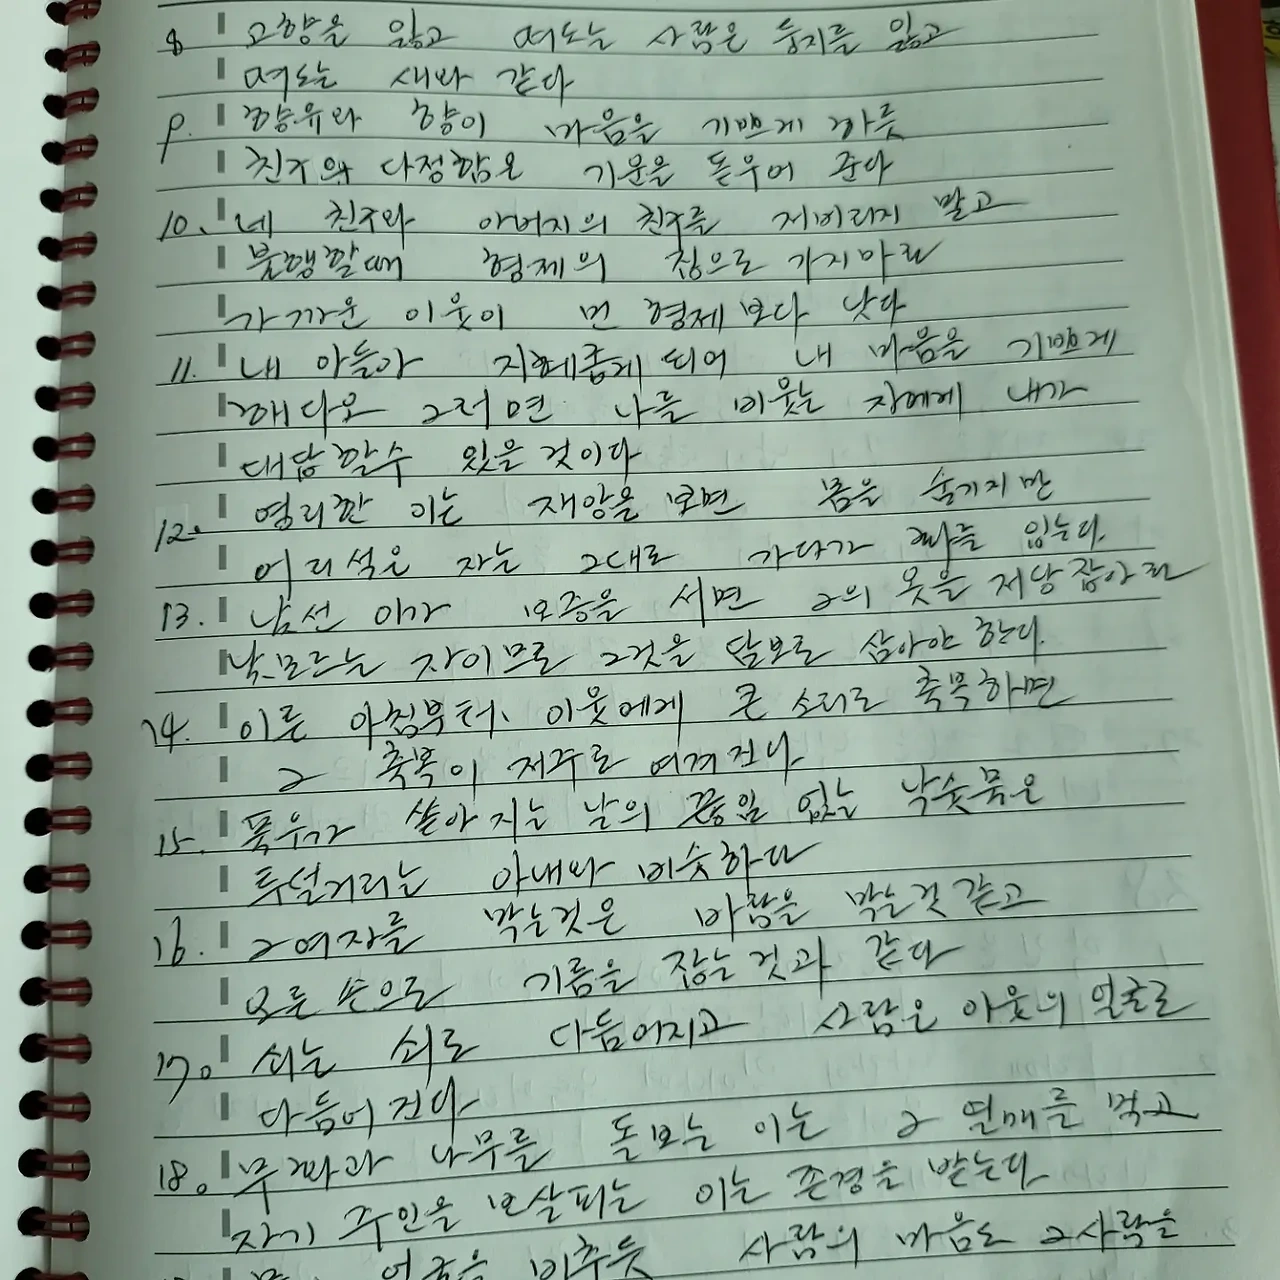 8 고향을 잃고 떠도는 사람은 둥지를 잃고
떠도는 새와 같다
9. 향유와 향이 마음을 기쁘게 하듯
친구의 다정함은 기운을 돋우어 준다
10. 네 친구와 아버지의 친구를 저버리지 말고
불행할때 형제의 집으로 가지마라
가까운 이웃이 먼 형제보다 낫다
11. 내 아들아 지혜롭게 되어 내 마음을 기쁘게
해다오 그러면 나를 비웃는 자에게 내가
대답할수 있을 것이다
12. 영리한 이는 재앙을 보면 몸을 숨기지만
어리석은 자는 그대로 가다가 화를 입는다.
13. 낯선 이가 보증을 서면 그의 옷을 저당잡아라
낯모르는 자이므로 그것을 담보로 삼아야 한다.
14. 이른 아침부터 이웃에게 큰 소리로 축복하면
그 축복이 저주로 여겨진다
15. 폭우가 쏟아지는 날의 끊임 없는 낙숫물은
투덜거리는 아내와 비슷하다
16. 그여자를 막는것은 바람을 막는것 같고
오른 손으로 기름을 잡는것과 같다
17. 쇠는 쇠로 다듬어지고 사람은 이웃의 얼굴로
다듬어진다
18. 무화과 나무를 돌보는 이는 그 열매를 먹고
자기 주인을 보살피는 이는 존경을 받는다
얼굴을 비추듯 사람의 마음도 그사람을